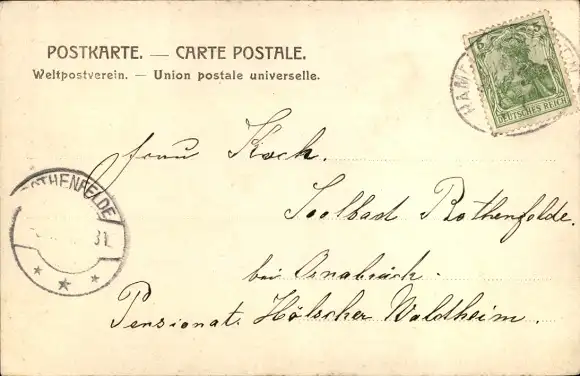 POSTKARTE. — CARTE POSTALE.
Weltpostverein. — Union postale universelle.
5 5
DEUTSCHES REICH
Frau Koch.
Soolbad Rothenfelde.
bei Osnabrück.
Pensionat Hölscher Waldheim.
ROTHENFELDE